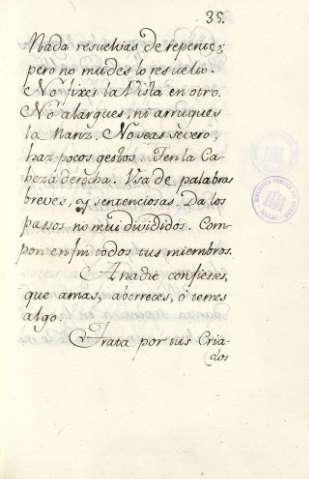 35.
Nada resuelvas de repente;
pero no mudes lo resuelto.
No fixes la Vista en otro.
No alargues, ni arrugues
la Nariz. No seas severo,
haz pocos gestos. Ten la Ca-
beza derecha. Usa de palabras
breves, y sentenciosas. Da los
passos no mui divididos. Com-
pon en fin todos tus miembros.
A nadie confieses,
que amas, aborreces, ó temes
algo.
Trata por tus Cria-
dos